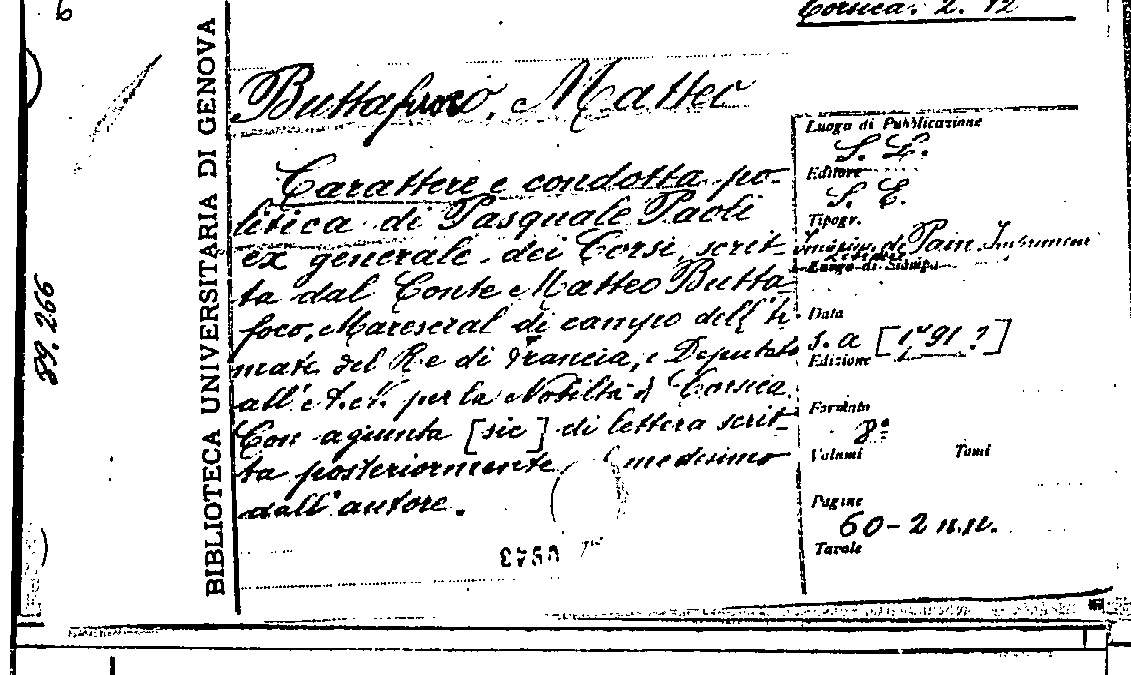 6
Corsica. 2. 12
BIBLIOTECA UNIVERSITARIA DI GENOVA
89. 266
Buttafuoco, Matteo
Carattere e condotta po-
litica di Pasquale Paoli
ex generale dei Corsi, scrit-
ta dal Conte Matteo Butta-
foco, Marescial di campo dell'
del Re di Francia, e Deputato
all'A.N. per la Nobiltà di Corsica.
Con agiunta [sic] di lettera scrit-
ta posteriormente medesimo
dall'autore.
Luogo di Pubblicazione
S. L.
Editore
S. E.
Tipogr.
di Pain
Luogo di Stampa
Data
s. a [1791?]
Edizione
Formato
8º
Volumi Tomi
Pagine
60-2 n.n.
Tavole